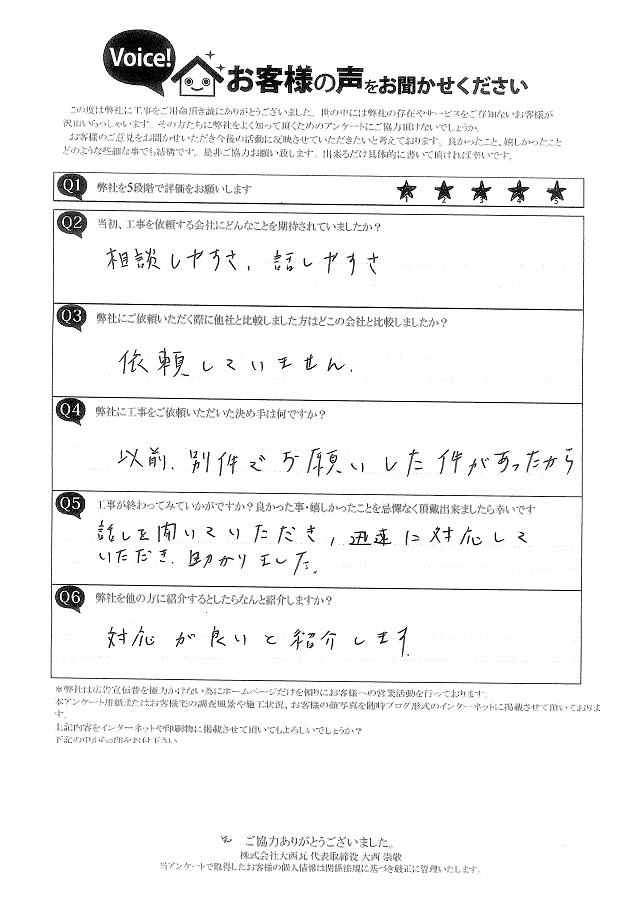 Voice!
お客様の声をお聞かせください
この度は弊社に工事をご用命頂き誠にありがとうございました。世の中には弊社の存在やサービスをご存知ないお客様が
沢山いらっしゃいます。その方たちに弊社をよく知って頂くためのアンケートにご協力頂けないでしょうか。
お客様のご意見をお聞かせいただき今後の活動に反映させていただきたいと考えております。良かったこと、嬉しかったこと
どのような些細な事でも結構です。是非ご協力お願い致します。出来るだけ具体的に書いて頂ければ幸いです。
Q1 弊社を5段階で評価をお願いします ★1 ★2 ★3 ★4 ★5
Q2 当初、工事を依頼する会社にどんなことを期待されていましたか?
相談しやすさ、話しやすさ
Q3 弊社にご依頼いただく際に他社と比較しました方はどこの会社と比較しましたか?
依頼していません.
Q4 弊社に工事をご依頼いただいた決め手は何ですか?
以前、別件でお願いした件があったから
Q5 工事が終わってみていかがですか?良かった事・嬉しかったことを忌憚なく頂戴出来ましたら幸いです
話しを聞いていただき、迅速に対応して
いただき、助かりました。
Q6 弊社を他の方に紹介するとしたらなんと紹介しますか?
対応が良いと紹介します。
※弊社は広告宣伝費を極力かけない為にホームページだけを頼りにお客様への営業活動を行っております。
本アンケート用紙またはお客様宅の調査風景や施工状況、お客様の顔写真を随時ブログ形式のインターネットに掲載させて頂いておりま
す。
上記内容をインターネットや印刷物に掲載させて頂いてもよろしいでしょうか?
下記の中から○印をお付け下さい
ご協力ありがとうございました。
株式会社大西瓦 代表取締役 大西 崇敬
当アンケートで取得したお客様の個人情報は関係法規に基づき厳正に管理いたします。